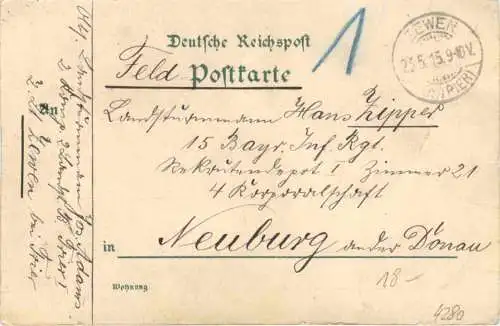 Deutsche Reichspost
Feld Postkarte
ZEWEN
23.5.15.9-10V.
(BZ. TRIER)
1
An
Landsturmmann Hans Zipper
15 Bayr. Inf. Rgt.
Rekrutendepot I Zimmer 21
4 Korporalschaft
in Neuburg an der Donau
Wohnung
18-
4280
Abs. Landsturmmann Jos Adams
2 Komp. 2 Landst. Trier I
z. Zt Zewen bei Trier